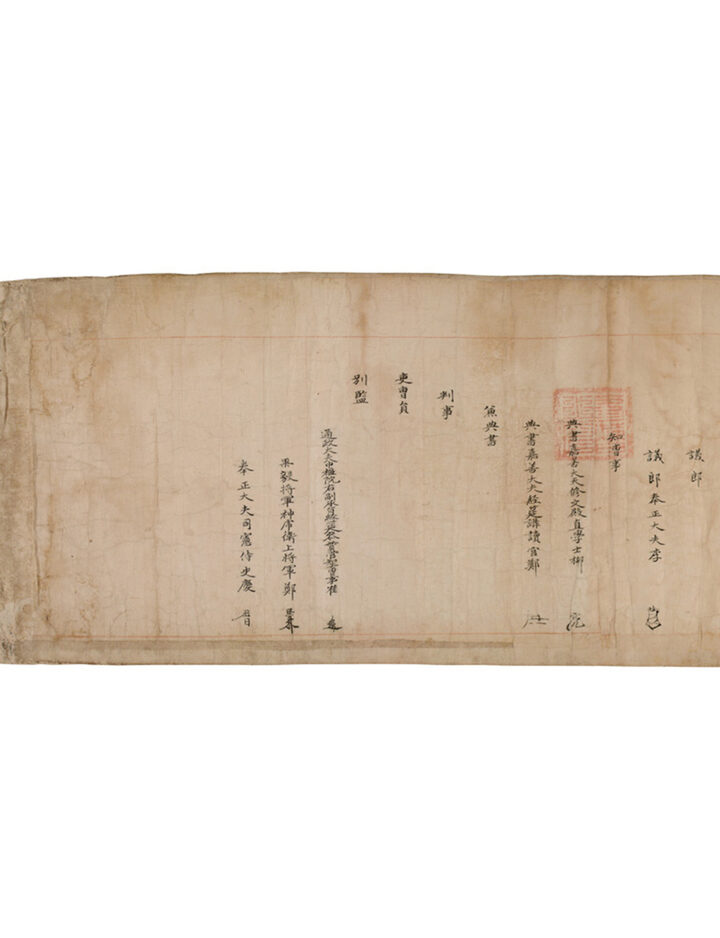 議郎
議郎奉正大夫李
知曹事
典書嘉善大夫修文殿直學士柳
典書嘉善大夫經筵講讀官鄭
兼典書
判事
吏曹員
別監
通政大夫中樞院右副承旨經筵
果毅將軍神虎衛上將軍鄭
奉正大夫司憲侍史慶